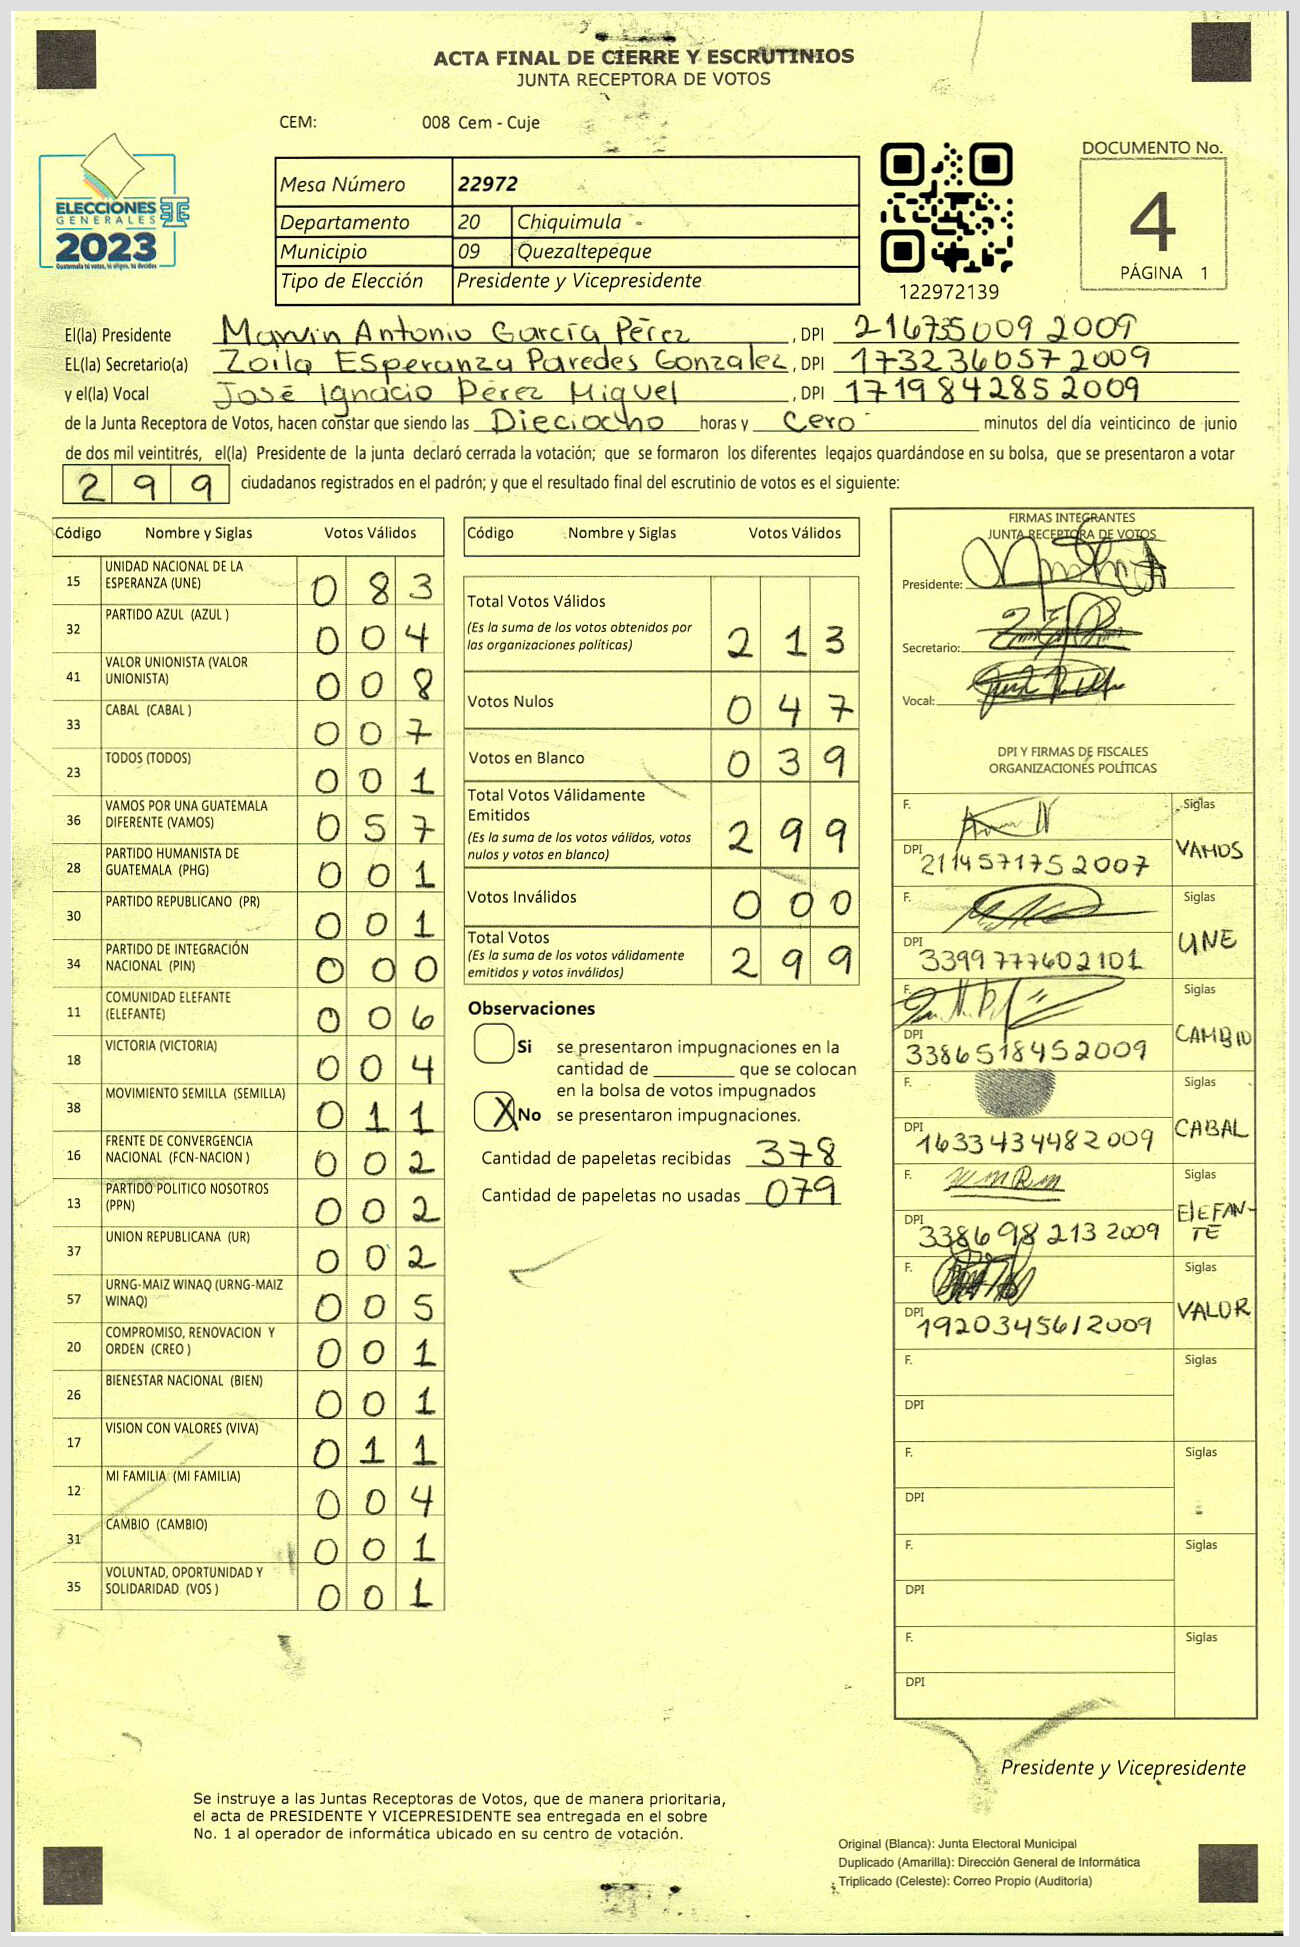 ACTA FINAL DE CIERRE Y ESCRUTINIOS
JUNTA RECEPTORA DE VOTOS
CEM: 008 Cem - Cuje
ELECCIONES
GENERALES
2023
Guatemala tú votas, tú eliges, tú decides
Mesa Número 22972
Departamento 20 Chiquimula
Municipio 09 Quezaltepeque
Tipo de Elección Presidente y Vicepresidente
122972139
DOCUMENTO No.
4
PÁGINA 1
El(la) Presidente Marvin Antonio García Pérez , DPI 216735009 2009
EL(la) Secretario(a) Zoila Esperanza Paredes Gonzalez , DPI 173236057 2009
y el(la) Vocal José Ignacio Pérez Miguel , DPI 171984285 2009
de la Junta Receptora de Votos, hacen constar que siendo las Dieciocho horas y Cero minutos del día veinticinco de junio
de dos mil veintitrés, el(la) Presidente de la junta declaró cerrada la votación; que se formaron los diferentes legajos guardándose en su bolsa, que se presentaron a votar
299 ciudadanos registrados en el padrón; y que el resultado final del escrutinio de votos es el siguiente:
Código Nombre y Siglas Votos Válidos
15 UNIDAD NACIONAL DE LA ESPERANZA (UNE) 083
32 PARTIDO AZUL (AZUL ) 004
41 VALOR UNIONISTA (VALOR UNIONISTA) 008
33 CABAL (CABAL ) 007
23 TODOS (TODOS) 001
36 VAMOS POR UNA GUATEMALA DIFERENTE (VAMOS) 057
28 PARTIDO HUMANISTA DE GUATEMALA (PHG) 001
30 PARTIDO REPUBLICANO (PR) 001
34 PARTIDO DE INTEGRACIÓN NACIONAL (PIN) 000
11 COMUNIDAD ELEFANTE (ELEFANTE) 006
18 VICTORIA (VICTORIA) 004
38 MOVIMIENTO SEMILLA (SEMILLA) 011
16 FRENTE DE CONVERGENCIA NACIONAL (FCN-NACION ) 002
13 PARTIDO POLITICO NOSOTROS (PPN) 002
37 UNION REPUBLICANA (UR) 002
57 URNG-MAIZ WINAQ (URNG-MAIZ WINAQ) 005
20 COMPROMISO, RENOVACION Y ORDEN (CREO ) 001
26 BIENESTAR NACIONAL (BIEN) 001
17 VISION CON VALORES (VIVA) 011
12 MI FAMILIA (MI FAMILIA) 004
31 CAMBIO (CAMBIO) 001
35 VOLUNTAD, OPORTUNIDAD Y SOLIDARIDAD (VOS ) 001
Código Nombre y Siglas Votos Válidos
Total Votos Válidos 213
(Es la suma de los votos obtenidos por
las organizaciones políticas)
Votos Nulos 047
Votos en Blanco 039
Total Votos Válidamente
Emitidos 299
(Es la suma de los votos válidos, votos
nulos y votos en blanco)
Votos Inválidos 000
Total Votos 299
(Es la suma de los votos válidamente
emitidos y votos inválidos)
Observaciones
Si se presentaron impugnaciones en la
cantidad de ________ que se colocan
en la bolsa de votos impugnados
X No se presentaron impugnaciones.
Cantidad de papeletas recibidas 378
Cantidad de papeletas no usadas 079
FIRMAS INTEGRANTES
JUNTA RECEPTORA DE VOTOS
Presidente:
Secretario:
Vocal:
DPI Y FIRMAS DE FISCALES
ORGANIZACIONES POLÍTICAS
F. Siglas VAMOS
DPI 211457175 2007
F. Siglas UNE
DPI 3399777602101
F. Siglas CAMBIO
DPI 3386518452009
F. Siglas CABAL
DPI 1633434482009
F. Siglas ElEFANTE
DPI 338698 213 2009
F. Siglas VALOR
DPI 1920345612009
F. Siglas
DPI
F. Siglas
DPI
F. Siglas
DPI
F. Siglas
DPI
Presidente y Vicepresidente
Se instruye a las Juntas Receptoras de Votos, que de manera prioritaria,
el acta de PRESIDENTE Y VICEPRESIDENTE sea entregada en el sobre
No. 1 al operador de informática ubicado en su centro de votación.
Original (Blanca): Junta Electoral Municipal
Duplicado (Amarilla): Dirección General de Informática
Triplicado (Celeste): Correo Propio (Auditoría)